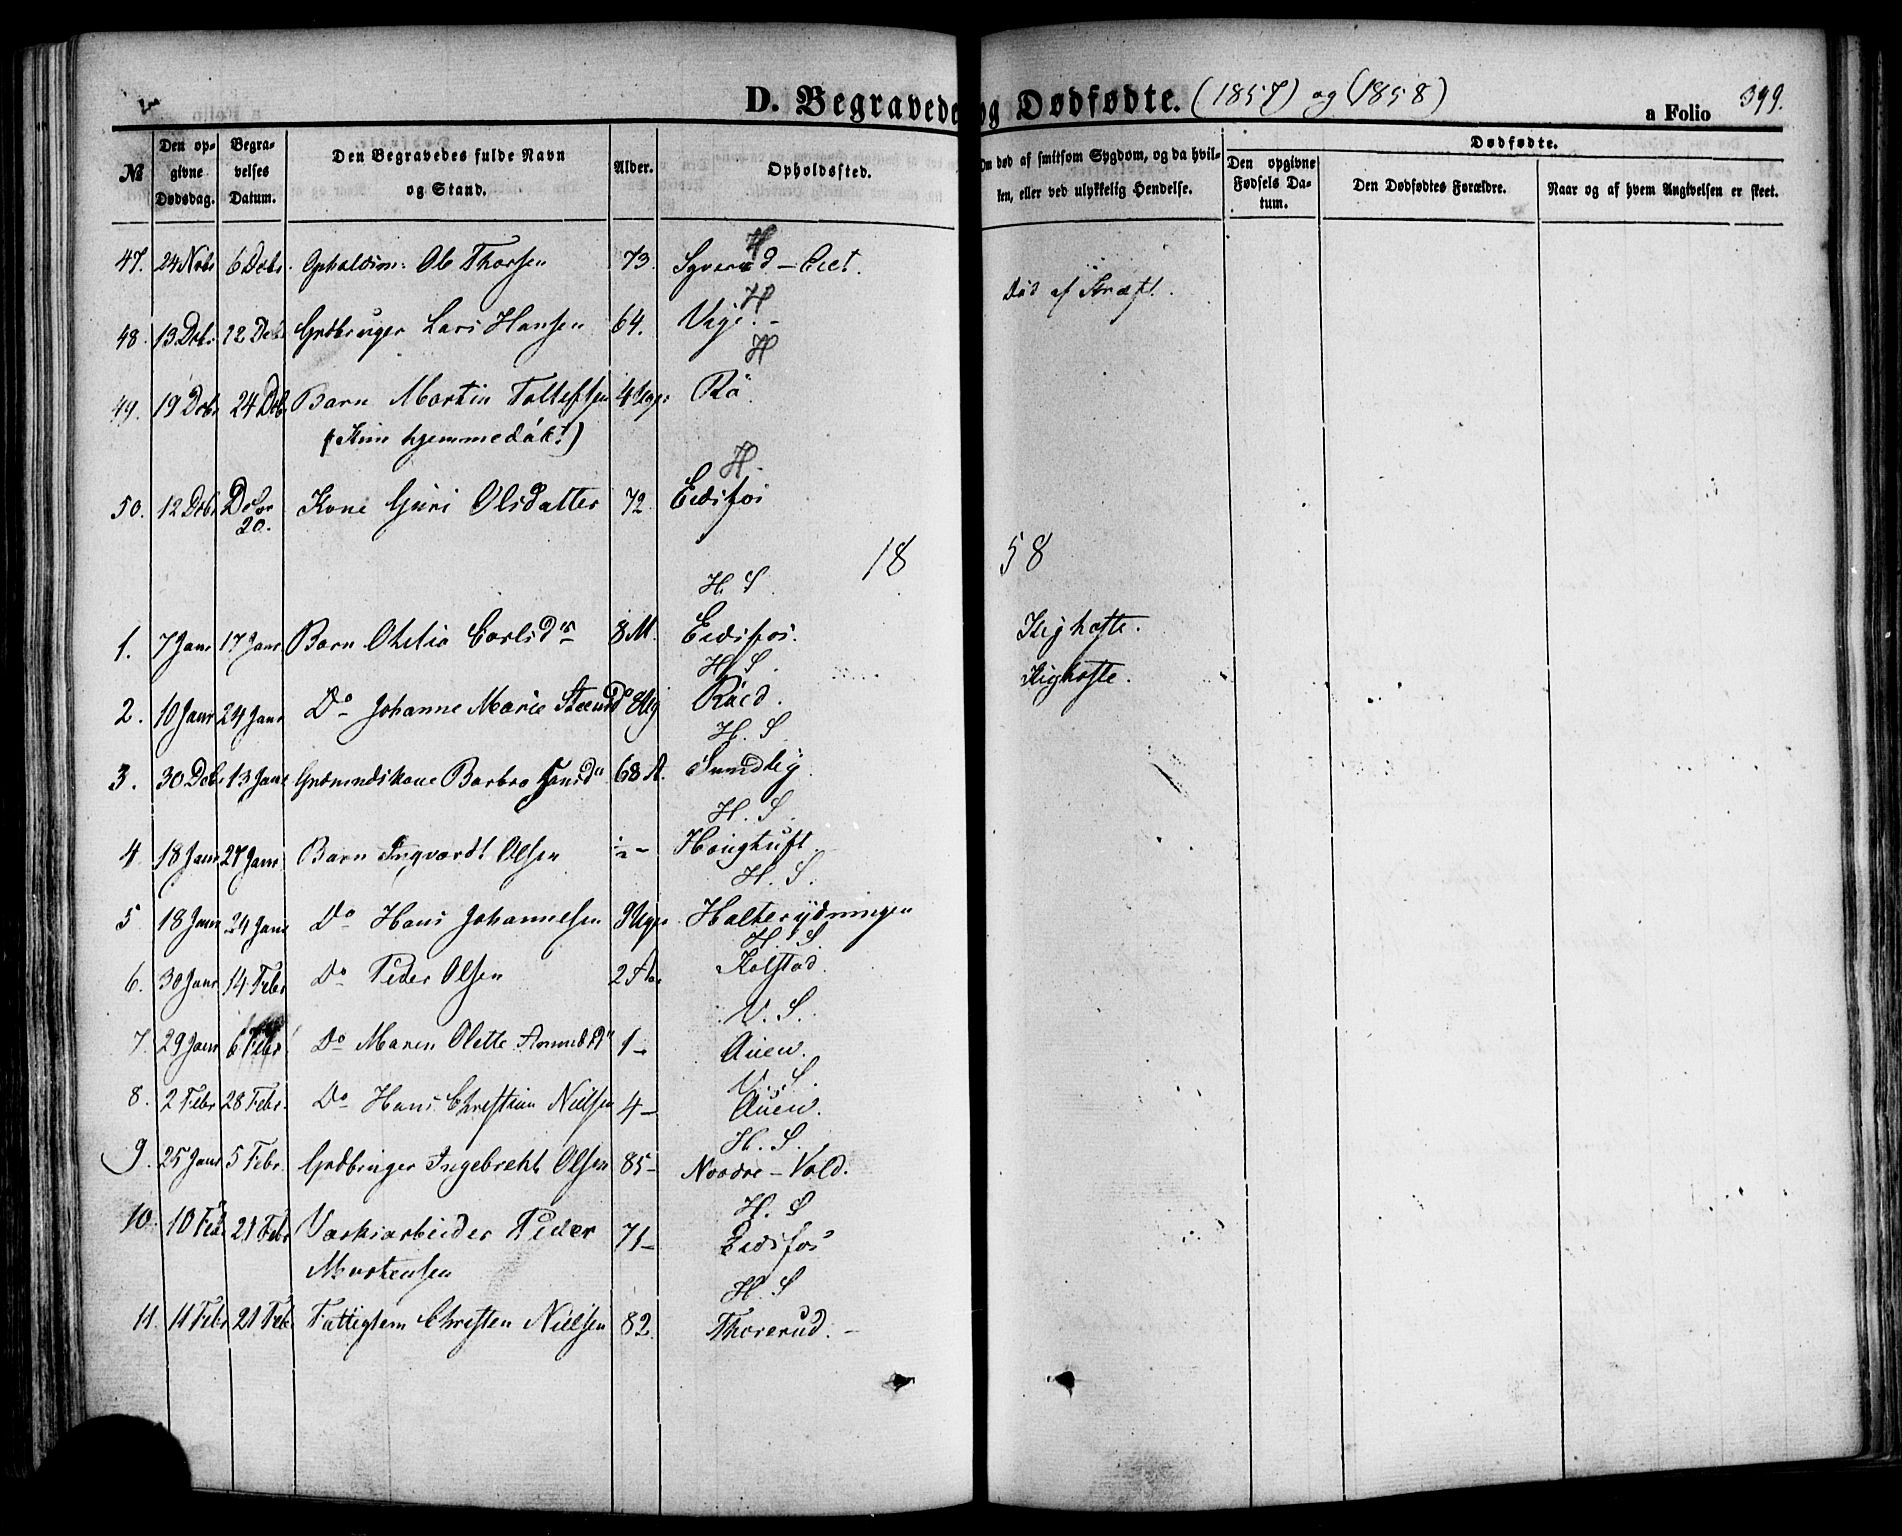 D. Begravede og Dødfødte. (1857) og (1858)
a Folio 399.
№ Den opgivne Dødsdag. Begravelses Datum. Den Begravedes fulde Navn og Stand. Alder. Opholdssted. Om død af smitsom Sygdom, og da hvilken, eller ved ulykkelig Hendelse. Dødfødte. Den opgivne Fødsels Datum. Den Dødfødtes Forældre. Naar og af hvem Angivelsen er skeet.
H
47. 24 Nobr 6 Debr. Opholdsm: Ole Thorsen 73. Syverud-Eiet.
H
48. 13 Debr 22 Debr Grdbruger Lars Hansen 64. Vige. - Død af Kræft.
H
49. 19 Debr 24 Debr Barn Martin Tollefsen 4 Uger Rø.
(Kun hjemmedøbt)
H.
50. 12 Debr Debr 20. Kone Guri Olsdatter 72. Eidsfos
18 58
H. S.
1. 7 Janr 17 Janr Barn Othilia Carlsdr 8 M. Eidsfos. Kighoste.
H. S.
2. 10 Janr 24 Janr Do Johanne Marie Røed. Kighoste.
H. S.
3. 30 Debr 13 Janr Grdmandskone Barbro Hansdr 68 A. Sundby
H. S.
4 18 Janr 27 Janr Barn Ingvardt Olsen Haugtuft.
H. S.
5 18 Janr 24 Janr Do Hans Johannesen 9 Uger Halterydningen
H. S.
6. 30 Janr 14 Febr Do Peder Olsen Kolstad.
V. S.
7. 29 Janr 6 Febr Do Maren Olette 1 - Auen.
V. S.
8. 2 Febr 28 Febr. Do Hans Christian Nielsen 4 - Auen.
H. S.
9. 25 Janr 5 Febr. Grdbruger Ingebreht Olsen 85 - Nordre-Vold.
H. S
10. 10 Feb. 21 Febr Værksarbeider Peder 71 - Eidsfos
Mortensen
H. S
11. 11 Febr 21 Feb. Fattiglem Christen Nielsen 82. Thorerud. -